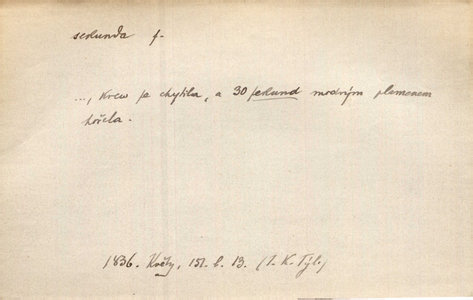 sekunda f.
..., krew se chytila, a 30 sekund modrým plamenem
hořela.
1836. Květy, 151. b. 13. (J. K. Tyl.)